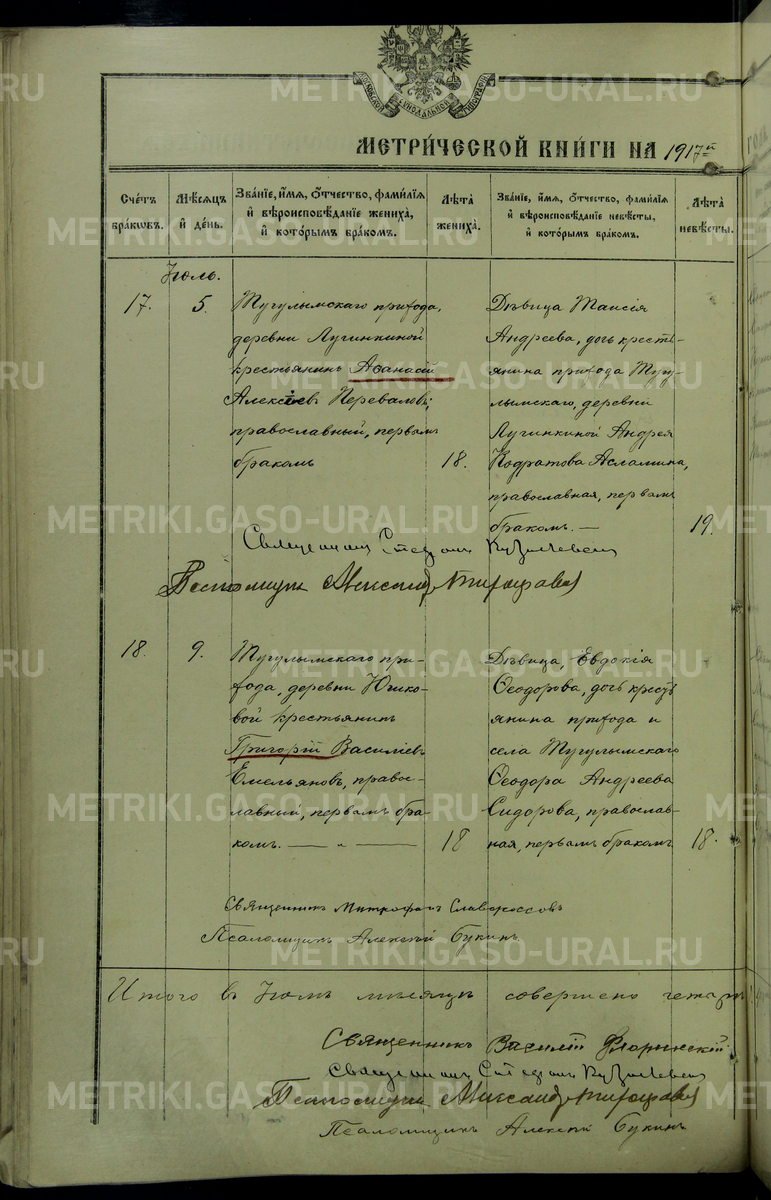 МЕТРИ́ЧЕСКОЙ КНИ́ГИ НА 1917й
Сче́тъ бра́кωвъ.
Мѣ́сяцъ и҆ де́нь.
Зва́нїе, и҆́мѧ, ѻ҆́тчество, фами́лїѧ и҆ вѣроисповѣ́данїе жениха̀, и҆ кото́рымъ бра́комъ.
Лѣ̀та жениха̀.
Зва́нїе, и҆́мѧ, ѻ҆́тчество, фами́лїѧ и҆ вѣроисповѣ́данїе невѣ́сты, и҆ кото́рымъ бра́комъ.
Лѣ̀та невѣ́сты.
Іюль.
17.
5.
Тугулымскаго прихода,
деревни Лучинкиной
крестьянинъ Аѳанасій
Алексѣевъ Переваловъ,
православный, первымъ
бракомъ
18.
Дѣвица Таисія
Андреева, дочь кресть-
янина прихода Тугу-
лымскаго, деревни
Лучинкиной Андрея
Кодратова Асламина,
православная, первымъ
бракомъ. —
19.
Священникъ Стефанъ
Псаломщикъ Александръ
18.
9.
Тугулымскаго при-
хода, деревни Юшко-
вой крестьянинъ
Григорій Василіевъ
Емельяновъ, право-
славный, первымъ бра-
комъ. — „ —
18
Дѣвица, Евдокія
Ѳеодорова, дочь крест-
янина прихода и
села Тугулымскаго
Ѳеодора Андреева
Сидорова, православ-
ная, первымъ бракомъ
18.
Священникъ Митрофанъ Славороссовъ
Псаломщикъ Алексѣй Букинъ
Итого въ Іюлѣ мѣсяцѣ совершено четыре
Священникъ Василій Флоринскій
Священникъ Стефанъ
Псаломщикъ Александръ
Псаломщикъ Алексѣй Букинъ
METRIKI.GASO-URAL.RU